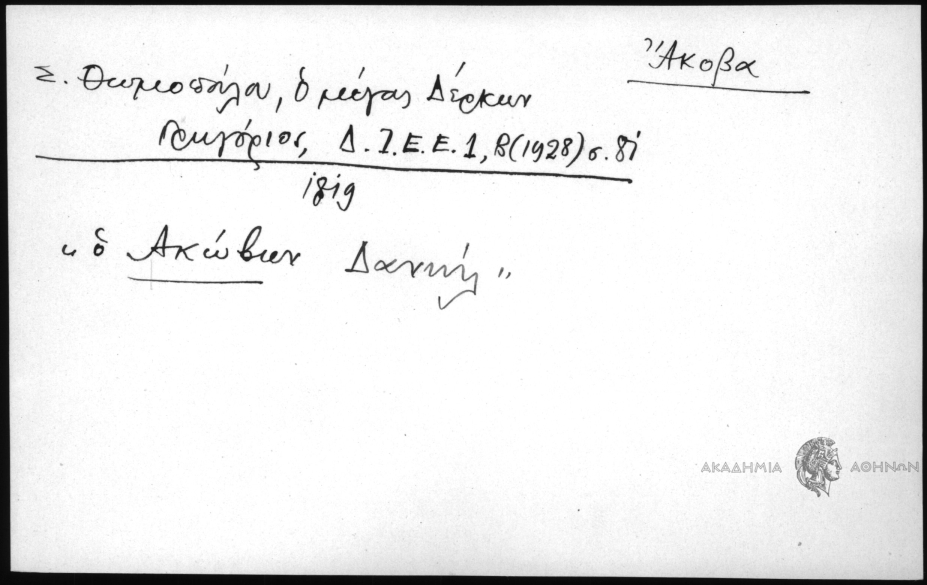 Ἄκοβα
Σ. Θωμοπούλου, ὁ μέγας Δέρκων
Γρηγόριος, Δ.Ι.Ε.Ε.1, Β(1928) σ. 81
1819
"ὁ Ακώβων Δανιήλ"
ΑΚΑΔΗΜΙΑ ΑΘΗΝΩΝ